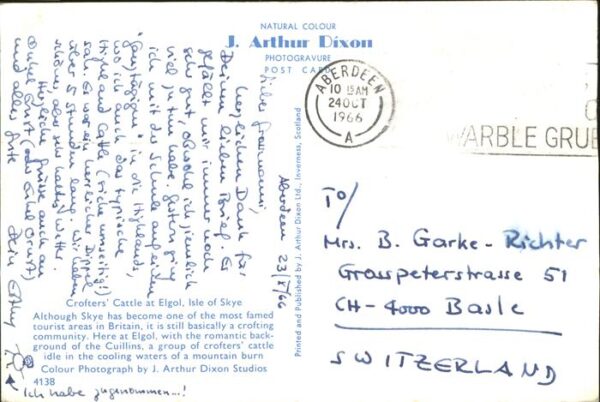 NATURAL COLOUR
J. Arthur Dixon
PHOTOGRAVURE
POST CARD
ABERDEEN
10 15 AM
24 OCT
1966
A
WARBLE GRUB
Aberdeen 23/X/66
Liebe Grossmami,
herzlichen Dank für
Deinen lieben Brief. Es
gefällt mir immer noch
sehr gut obwohl ich ziemlich
viel zu tun habe. Gestern ging
ich mit der Schule auf einen
"ganztägigen" in die Highlands,
wo ich auch das typische
Highland Cattle (siehe umseitig!)
sah. Es war ein herrlicher
über 5 Stunden lang. Wir
schönes, aber sehr kaltes Wetter.
Herzliche Grüsse auch an
Onkel Ernst (oder Enkel Ornst)
und alles gute
Dein
Ich habe zugenommen...!
To/
Mrs. B. Garke-Richter
Grosspeterstrasse 51
CH-4000 Basle
SWITZERLAND
Printed and Published by J. Arthur Dixon Ltd., Inverness, Scotland
Crofters' Cattle at Elgol, Isle of Skye
Although Skye has become one of the most famed
tourist areas in Britain, it is still basically a crofting
community. Here at Elgol, with the romantic back-
ground of the Cuillins, a group of crofters' cattle
idle in the cooling waters of a mountain burn
Colour Photograph by J. Arthur Dixon Studios
4138